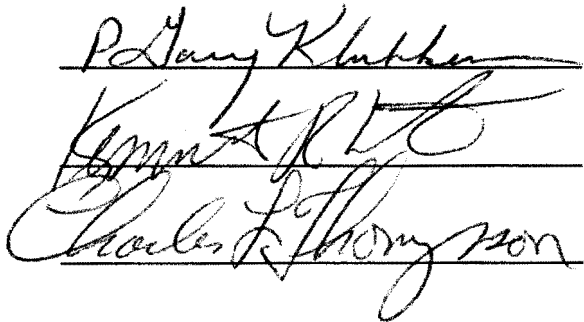 P Gary
Kenneth R
Charles L Thompson